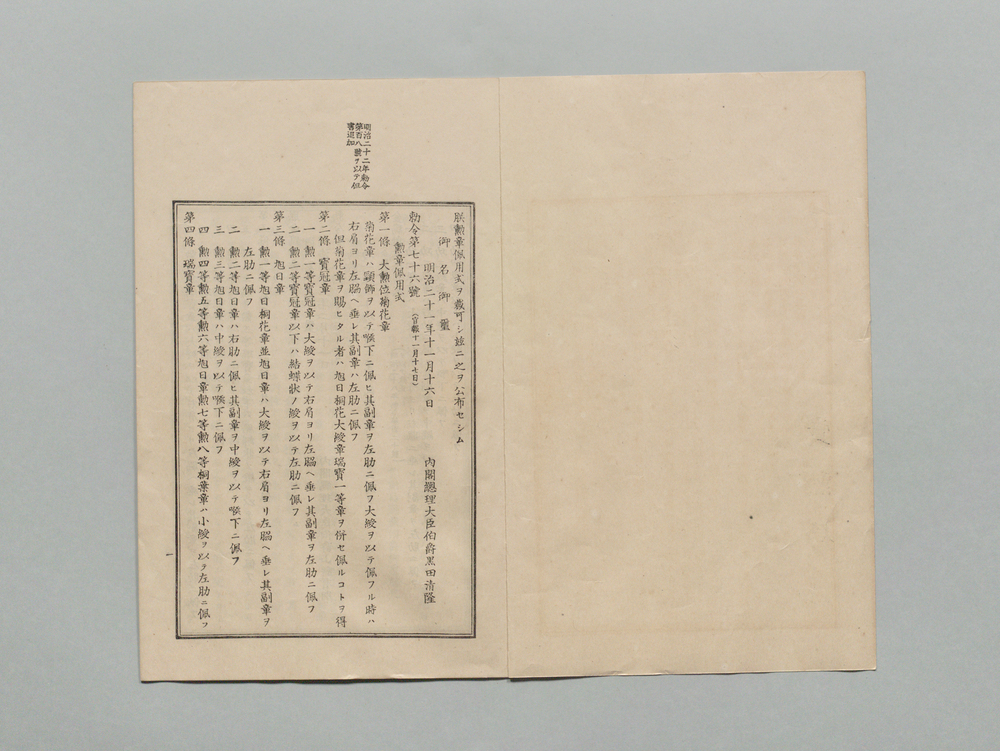 明治二十二年勅令
第百八號ヲ以テ但
書追加
朕勲章佩用式ヲ裁可シ玆ニ之ヲ公布セシム
御名御璽
明治二十一年十一月十六日
內閣總理大臣伯爵黑田清隆
勅令第七十六號(官報十一月十七日)
勲章佩用式
第一條 大勲位菊花章
菊花章ハ頸飾ヲ以テ喉下ニ佩ヒ其副章ヲ左肋ニ佩フ大綬ヲ以テ佩フル時ハ
右肩ヨリ左脇ヘ垂レ其副章ハ左肋ニ佩フ
但菊花章ヲ賜ヒタル者ハ旭日桐花大綬章瑞寶一等章ヲ併セ佩ルコトヲ得
第二條 寶冠章
一 勲一等寶冠章ハ大綬ヲ以テ右肩ヨリ左脇ヘ垂レ其副章ヲ左肋ニ佩フ
二 勲二等寶冠章以下ハ結蝶狀ノ綬ヲ以テ左肋ニ佩フ
第三條 旭日章
一 勲一等旭日桐花章並旭日章ハ大綬ヲ以テ右肩ヨリ左脇ヘ垂レ其副章ヲ
左肋ニ佩フ
二 勲二等旭日章ハ右肋ニ佩ヒ其副章ヲ中綬ヲ以テ喉下ニ佩フ
三 勲三等旭日章ハ中綬ヲ以テ喉下ニ佩フ
四 勲四等勲五等勲六等旭日章勲七等勲八等桐葉章ハ小綬ヲ以テ左肋ニ佩フ
第四條 瑞寶章
一